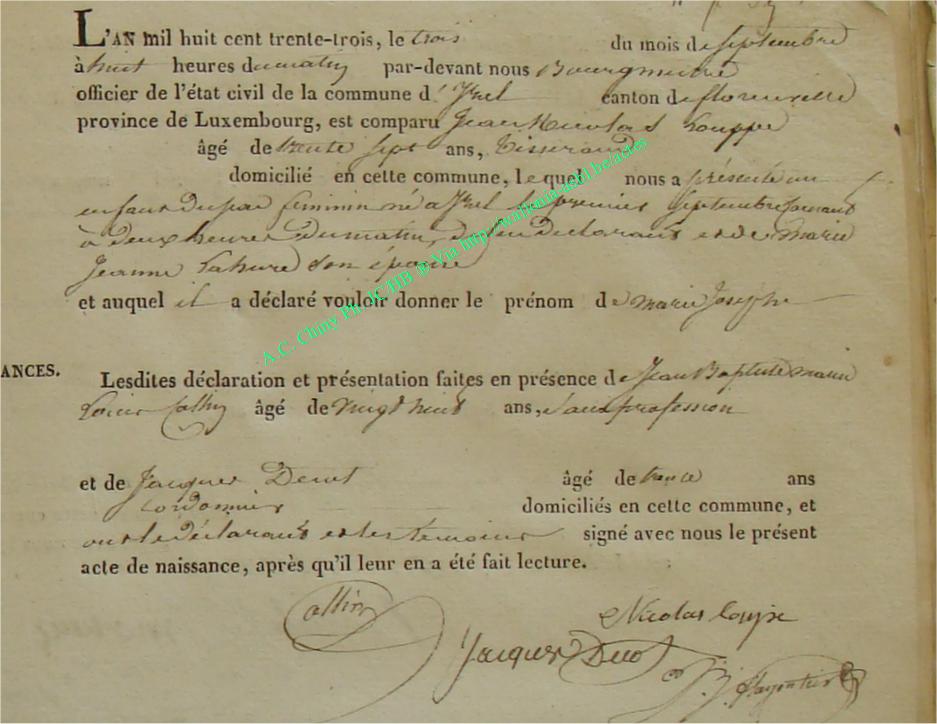 L'AN mil huit cent trente-trois, le trois du mois de Septembre
à huit heures du matin par-devant nous Bourgmestre
officier de l'état civil de la commune d'Izel canton de florenville
province de Luxembourg, est comparu Jean Nicolas Louppe
âgé de trente sept ans, Tisserand
domicilié en cette commune, lequel nous a présenté un
enfant du féminin né a Izel le premier Septembre Courant
à deux heures du matin, de lui declarant et de marie
Jeanne Lahure Son épouse
et auquel il a déclaré vouloir donner le prénom de marie Josephe
ANCES.
Lesdites déclaration et présentation faites en présence de Jean Baptiste
Collin âgé de vingt huit ans, Sans profession
et de Jacques Decot âgé de trente ans
Cordonnier domiciliés en cette commune, et
ont le déclarant et les temoins signé avec nous le présent
acte de naissance, après qu'il leur en a été fait lecture.
Collin
Nicolas Louppe
Jacques Decot
A.C. Chiny Ph. ICHB ® Via